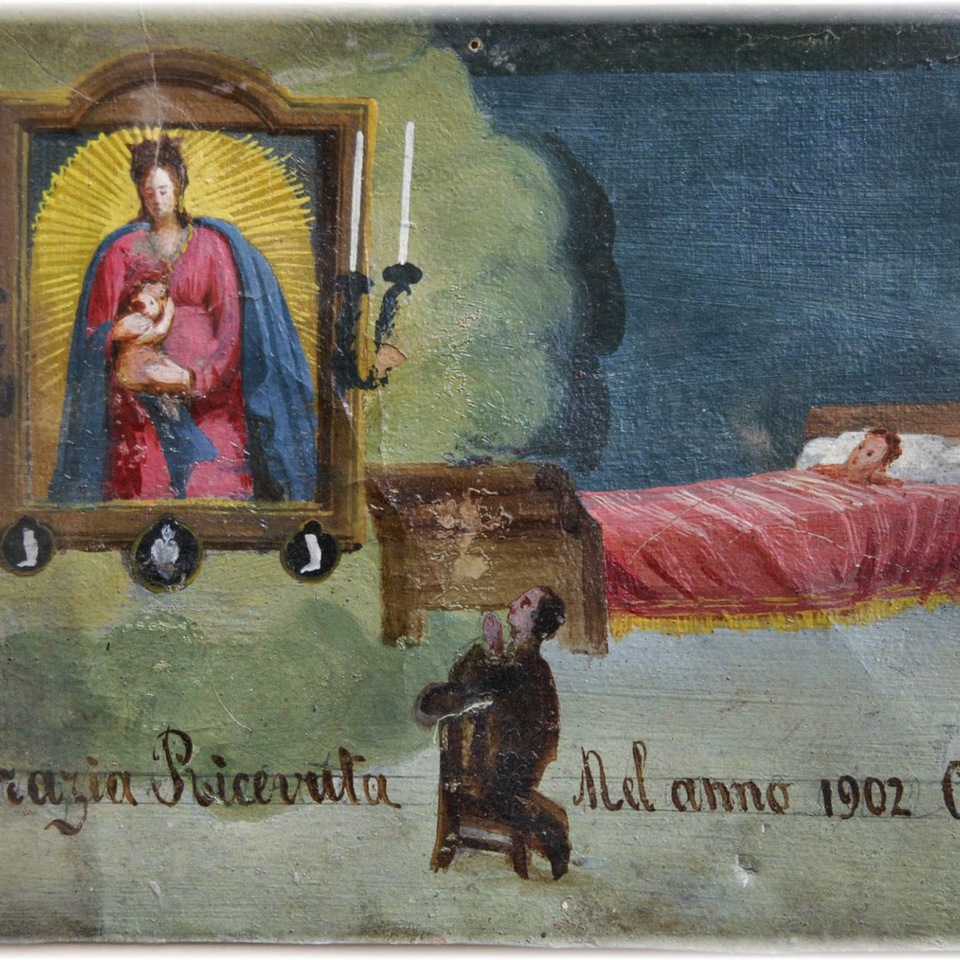 razia Ricevuta Nel anno 1902